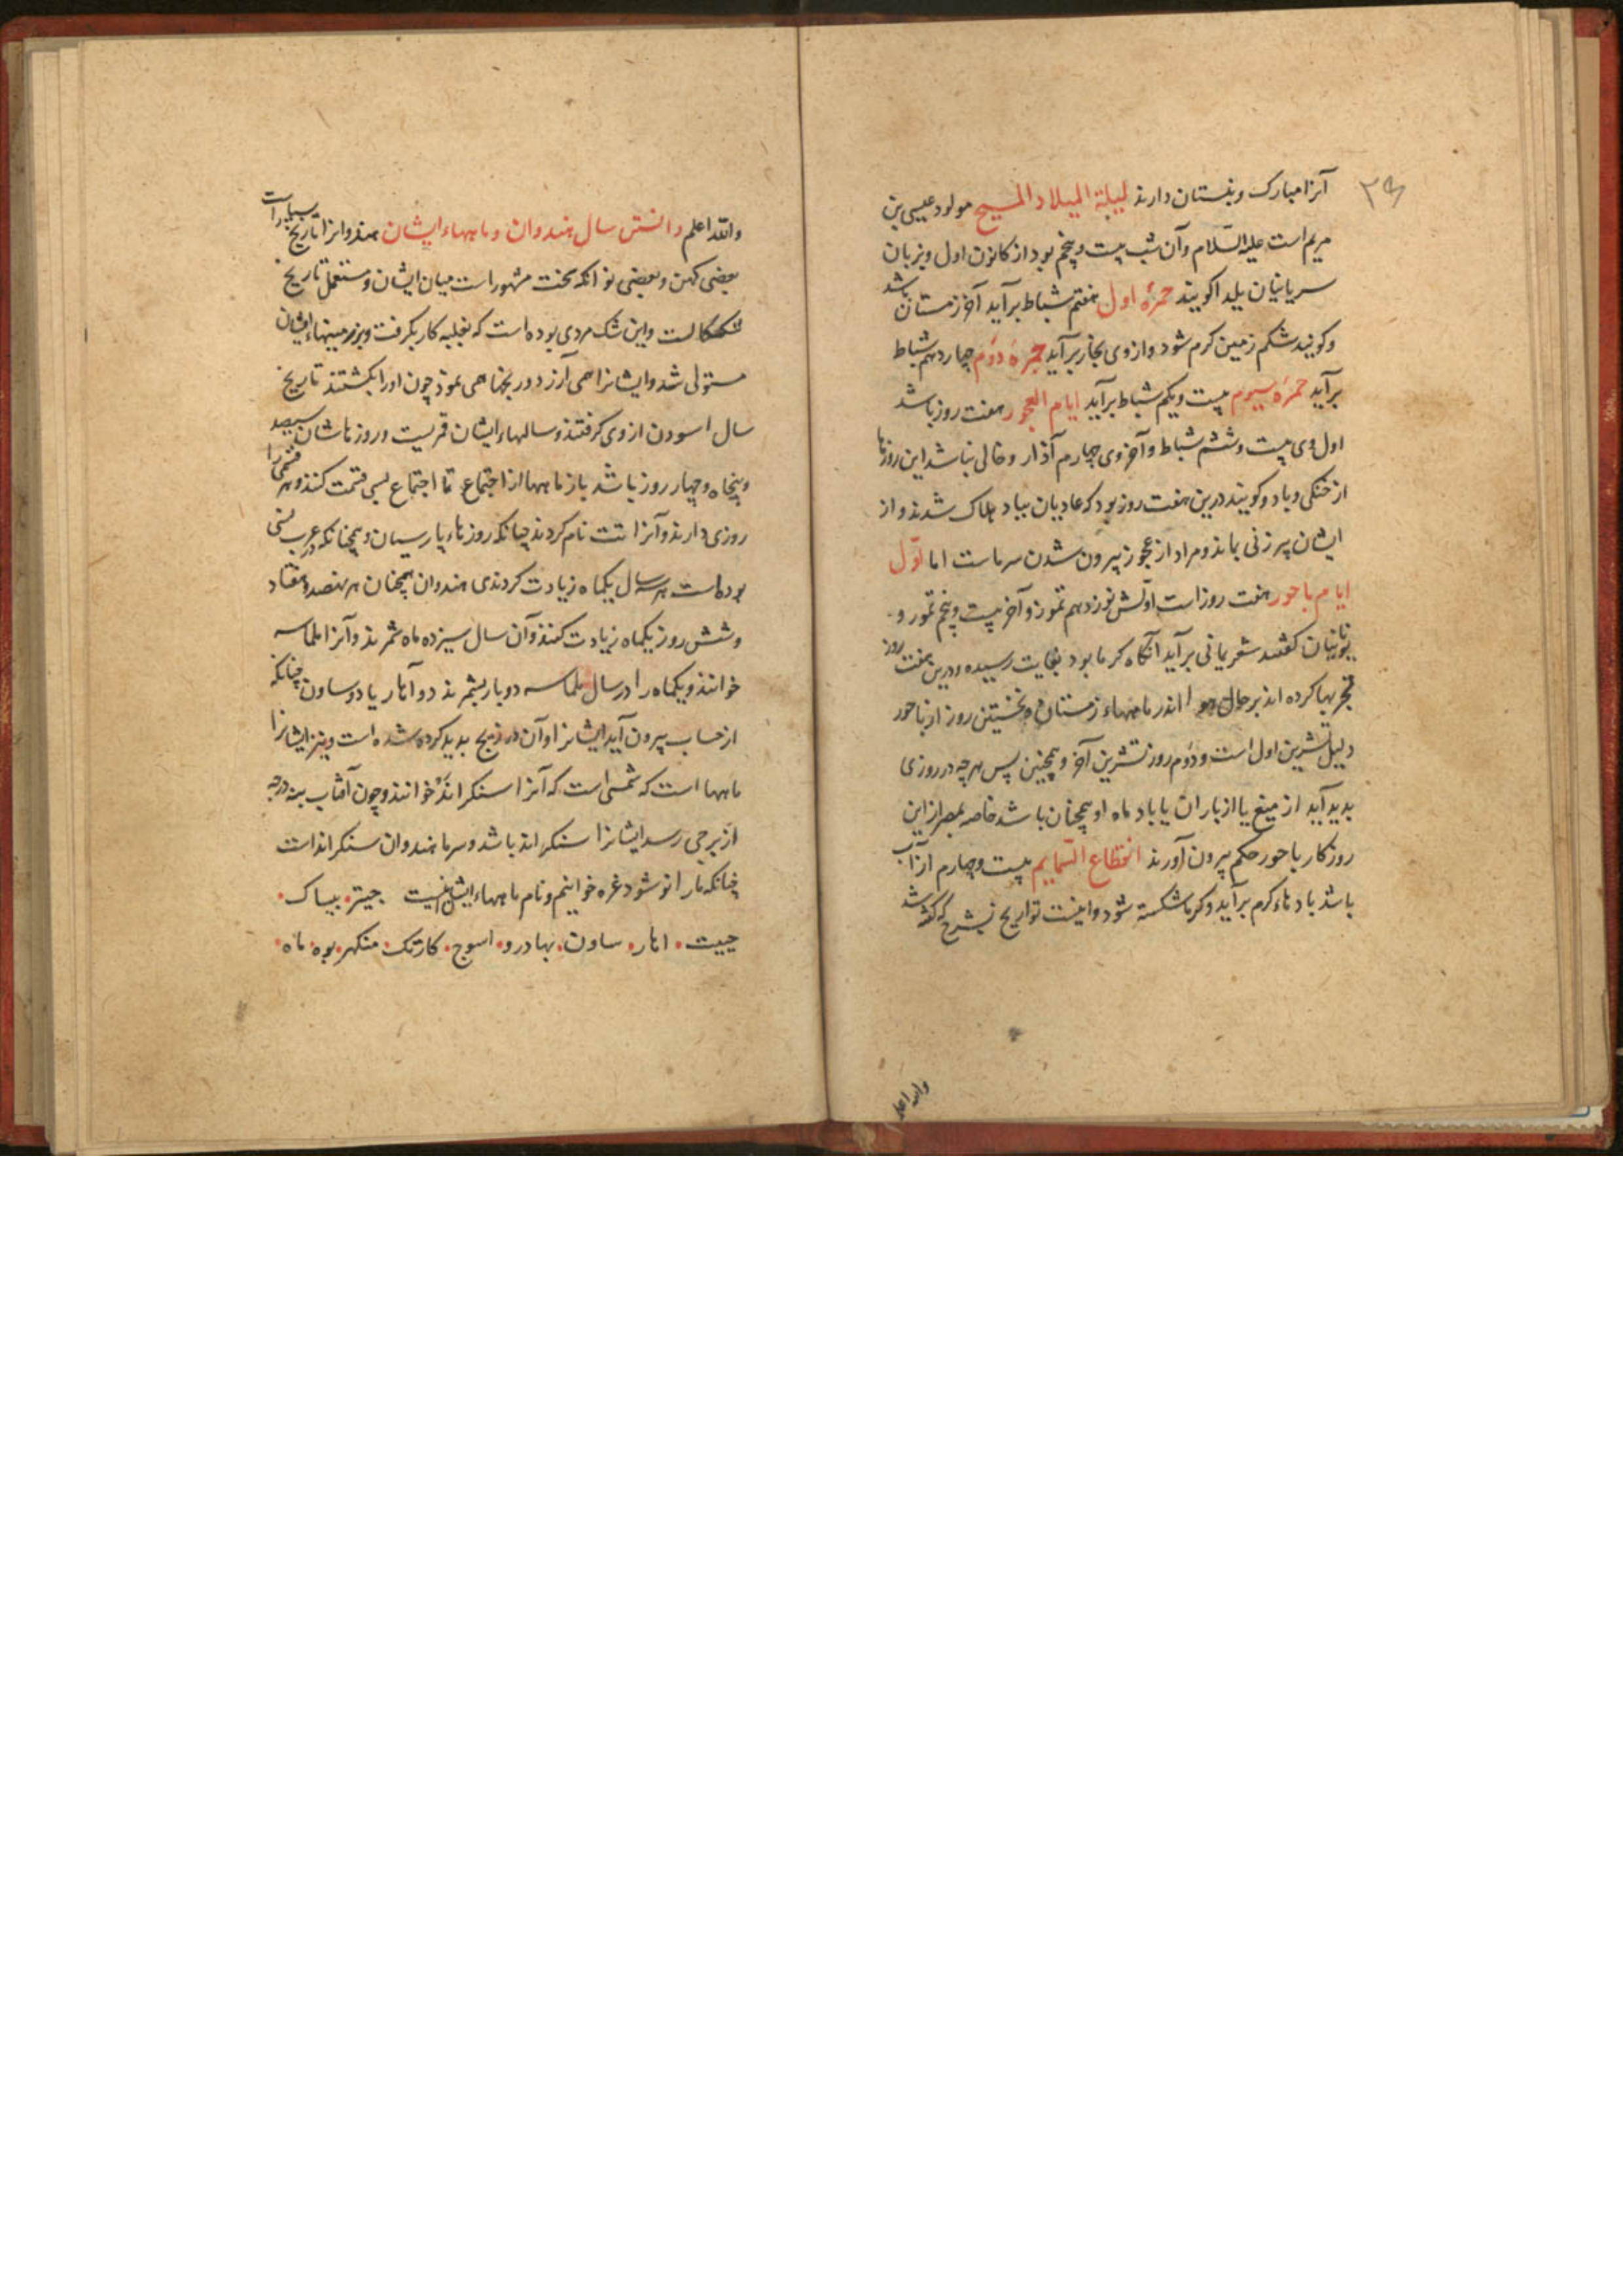 آنرا مبارک و بنستان دارند لیلة المیلاد المسیح مولود عیسی بن
مریم است علیه السّلام وآن شب بیست وپنجم بود از کانون اول وبزبان
سریانیان یلدا کویند جمرۀ اول هفتم شباط برآید آخر زمستان باشد
وکویند شکم زمین کرم شود وازوی بخار برآید جمرۀ دوم چهاردهم شباط
برآید جمرۀ سیوم بیست ویکم شباط برآید ایام العجوز هفت روز باشد
اول وی بیست وششم شباط وآخر وی چهارم آذار وخالی نباشد این روزها
از خنکی وباد وکویند درین هفت روز بود که عادیان بباد هلاک شدند واز
ایشان پیرزنی بماند ومراد از عجوز بیرون شدن سرماست اما اوّل
ایام باحور هفت روز است اولش نوزدهم تموز وآخر بیست وپنجم تموز و
یونانیان کفتند شعر یمانی برآید آنکاه کرما بود بغایت رسیده ودرین هفت روز
تجربها کرده اند بر حال هوا اندر ماههاء زمستان ونخستین روز از باحور
دلیل تشرین اول است ودوم روز تشرین آخر وهمچنین پس هرچه در روزی
بدید آید از میغ یا از باران یا باد ماه او همچنان باشد خاصه بمصر از این
روزکار باحور حکم بیرون آورند انقطاع السمایم بیست وچهارم از آب
باشد بادهاء کرم برآید وکرما شکسته شود واینست تواریخ بشرح که کفته شد
والله اعلم
والله اعلم دانستن سال هندوان وماههاء ایشان هندوانرا تاریخ بسیار است
بعضی کهن وبعضی نو انکه سخت مشهور است میان ایشان ومستعمل تاریخ
شککالست واین شک مردی بوده است که بغلبه کار بکرفت وبر زمینهاء ایشان
مستولی شد وایشانرا همی آزرد ورنجها همی نمود چون اورا بکشتند تاریخ
سال اسودن از وی کرفتند وسالهاء ایشان قمریست وروزهاشان سیصد
وپنجاه وچهار روز باشد باز ماهها از اجتماع تا اجتماع بسی قسمت کنند وهر قسمی را
روزی دارند وآنرا تت نام کردند چنانکه روزهاء پارسیان وهمچنانکه در عرب نسی
بوده است هر سه سال یکماه زیادت کردندی هندوان همچنان هر نهصد وهفتاد
وشش روز یکماه زیادت کنند وآن سال سیزده ماه شمرند وآنرا ملماسه
خوانند ویکماه را در سال ملماسه دو بار بشمرند دو آهار یا دو ساون چنانکه
از حساب بیرون آید ایشانرا وآن در زیج بدید کرده شده است ونیز ایشانرا
ماهها است که شمسی است که آنرا سنکراند خوانند وچون آفتاب بنه درجه
از برجی رسد ایشانرا سنکراند باشد وسر ماه هندوان سنکراند است
چنانکه ما را نو شود غره خوانیم ونام ماههاء ایشان اینست جیتر بیساک
جیت اهار ساون بهادرو اسوج کارتک منکهر پوه ماه